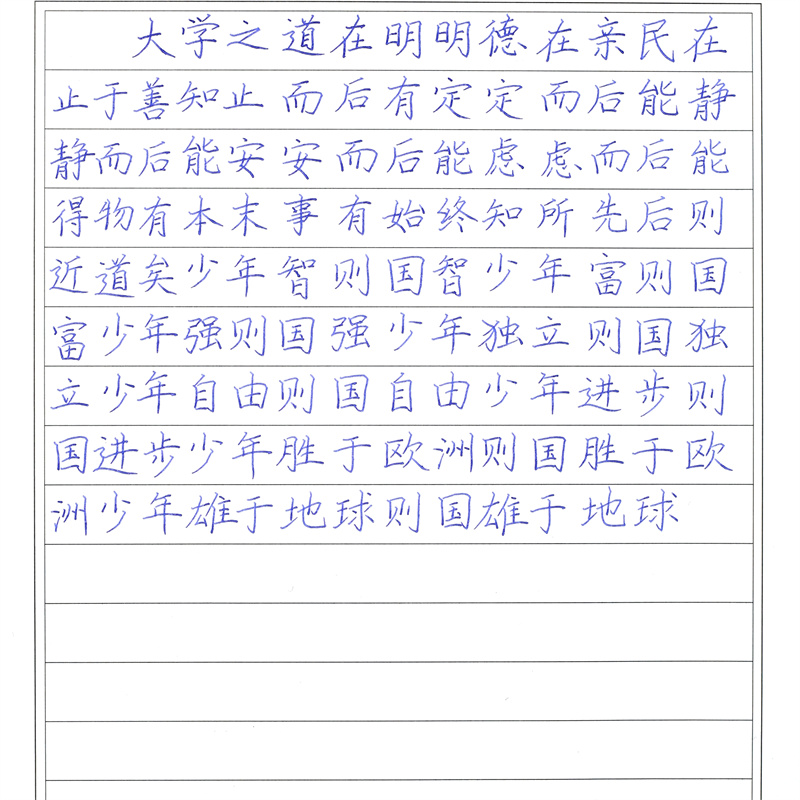 大学之道在明明德在亲民在
止于善知止而后有定定而后能静
静而后能安安而后能虑虑而后能
得物有本末事有始终知所先后则
近道矣少年智则国智少年富则国
富少年强则国强少年独立则国独
立少年自由则国自由少年进步则
国进步少年胜于欧洲则国胜于欧
洲少年雄于地球则国雄于地球